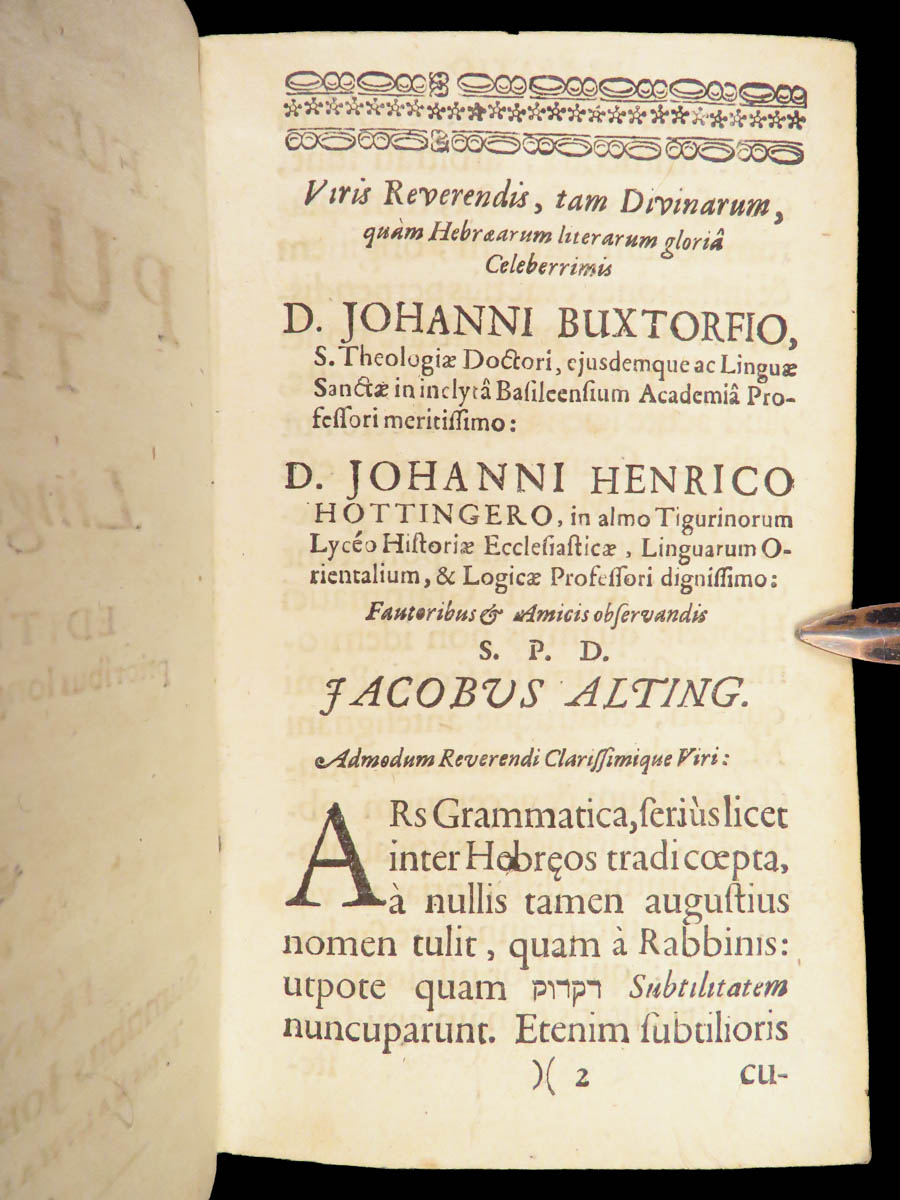 Viris Reverendis, tam Divinarum,
quàm Hebræarum literarum gloriâ
Celeberrimis
D. JOHANNI BUXTORFIO,
S. Theologiæ Doctori, ejusdemque ac Linguæ
Sanctæ in inclytâ Basileensium Academiâ Pro-
feſſori meritiſſimo:
D. JOHANNI HENRICO
HOTTINGERO, in almo Tigurinorum
Lycéo Hiſtoriæ Eccleſiaſticæ, Linguarum O-
rientalium, & Logicæ Profeſſori digniſſimo:
Fautoribus & Amicis obſervandis
S. P. D.
JACOBUS ALTING.
Admodum Reverendi Clariſſimique Viri:
ARs Grammatica, ſeriùs licet
inter Hebręos tradi cœpta,
à nullis tamen auguſtius
nomen tulit, quam à Rabbinis:
utpote quam דקדוק Subtilitatem
nuncuparunt. Etenim ſubtilioris
)( 2 cu-